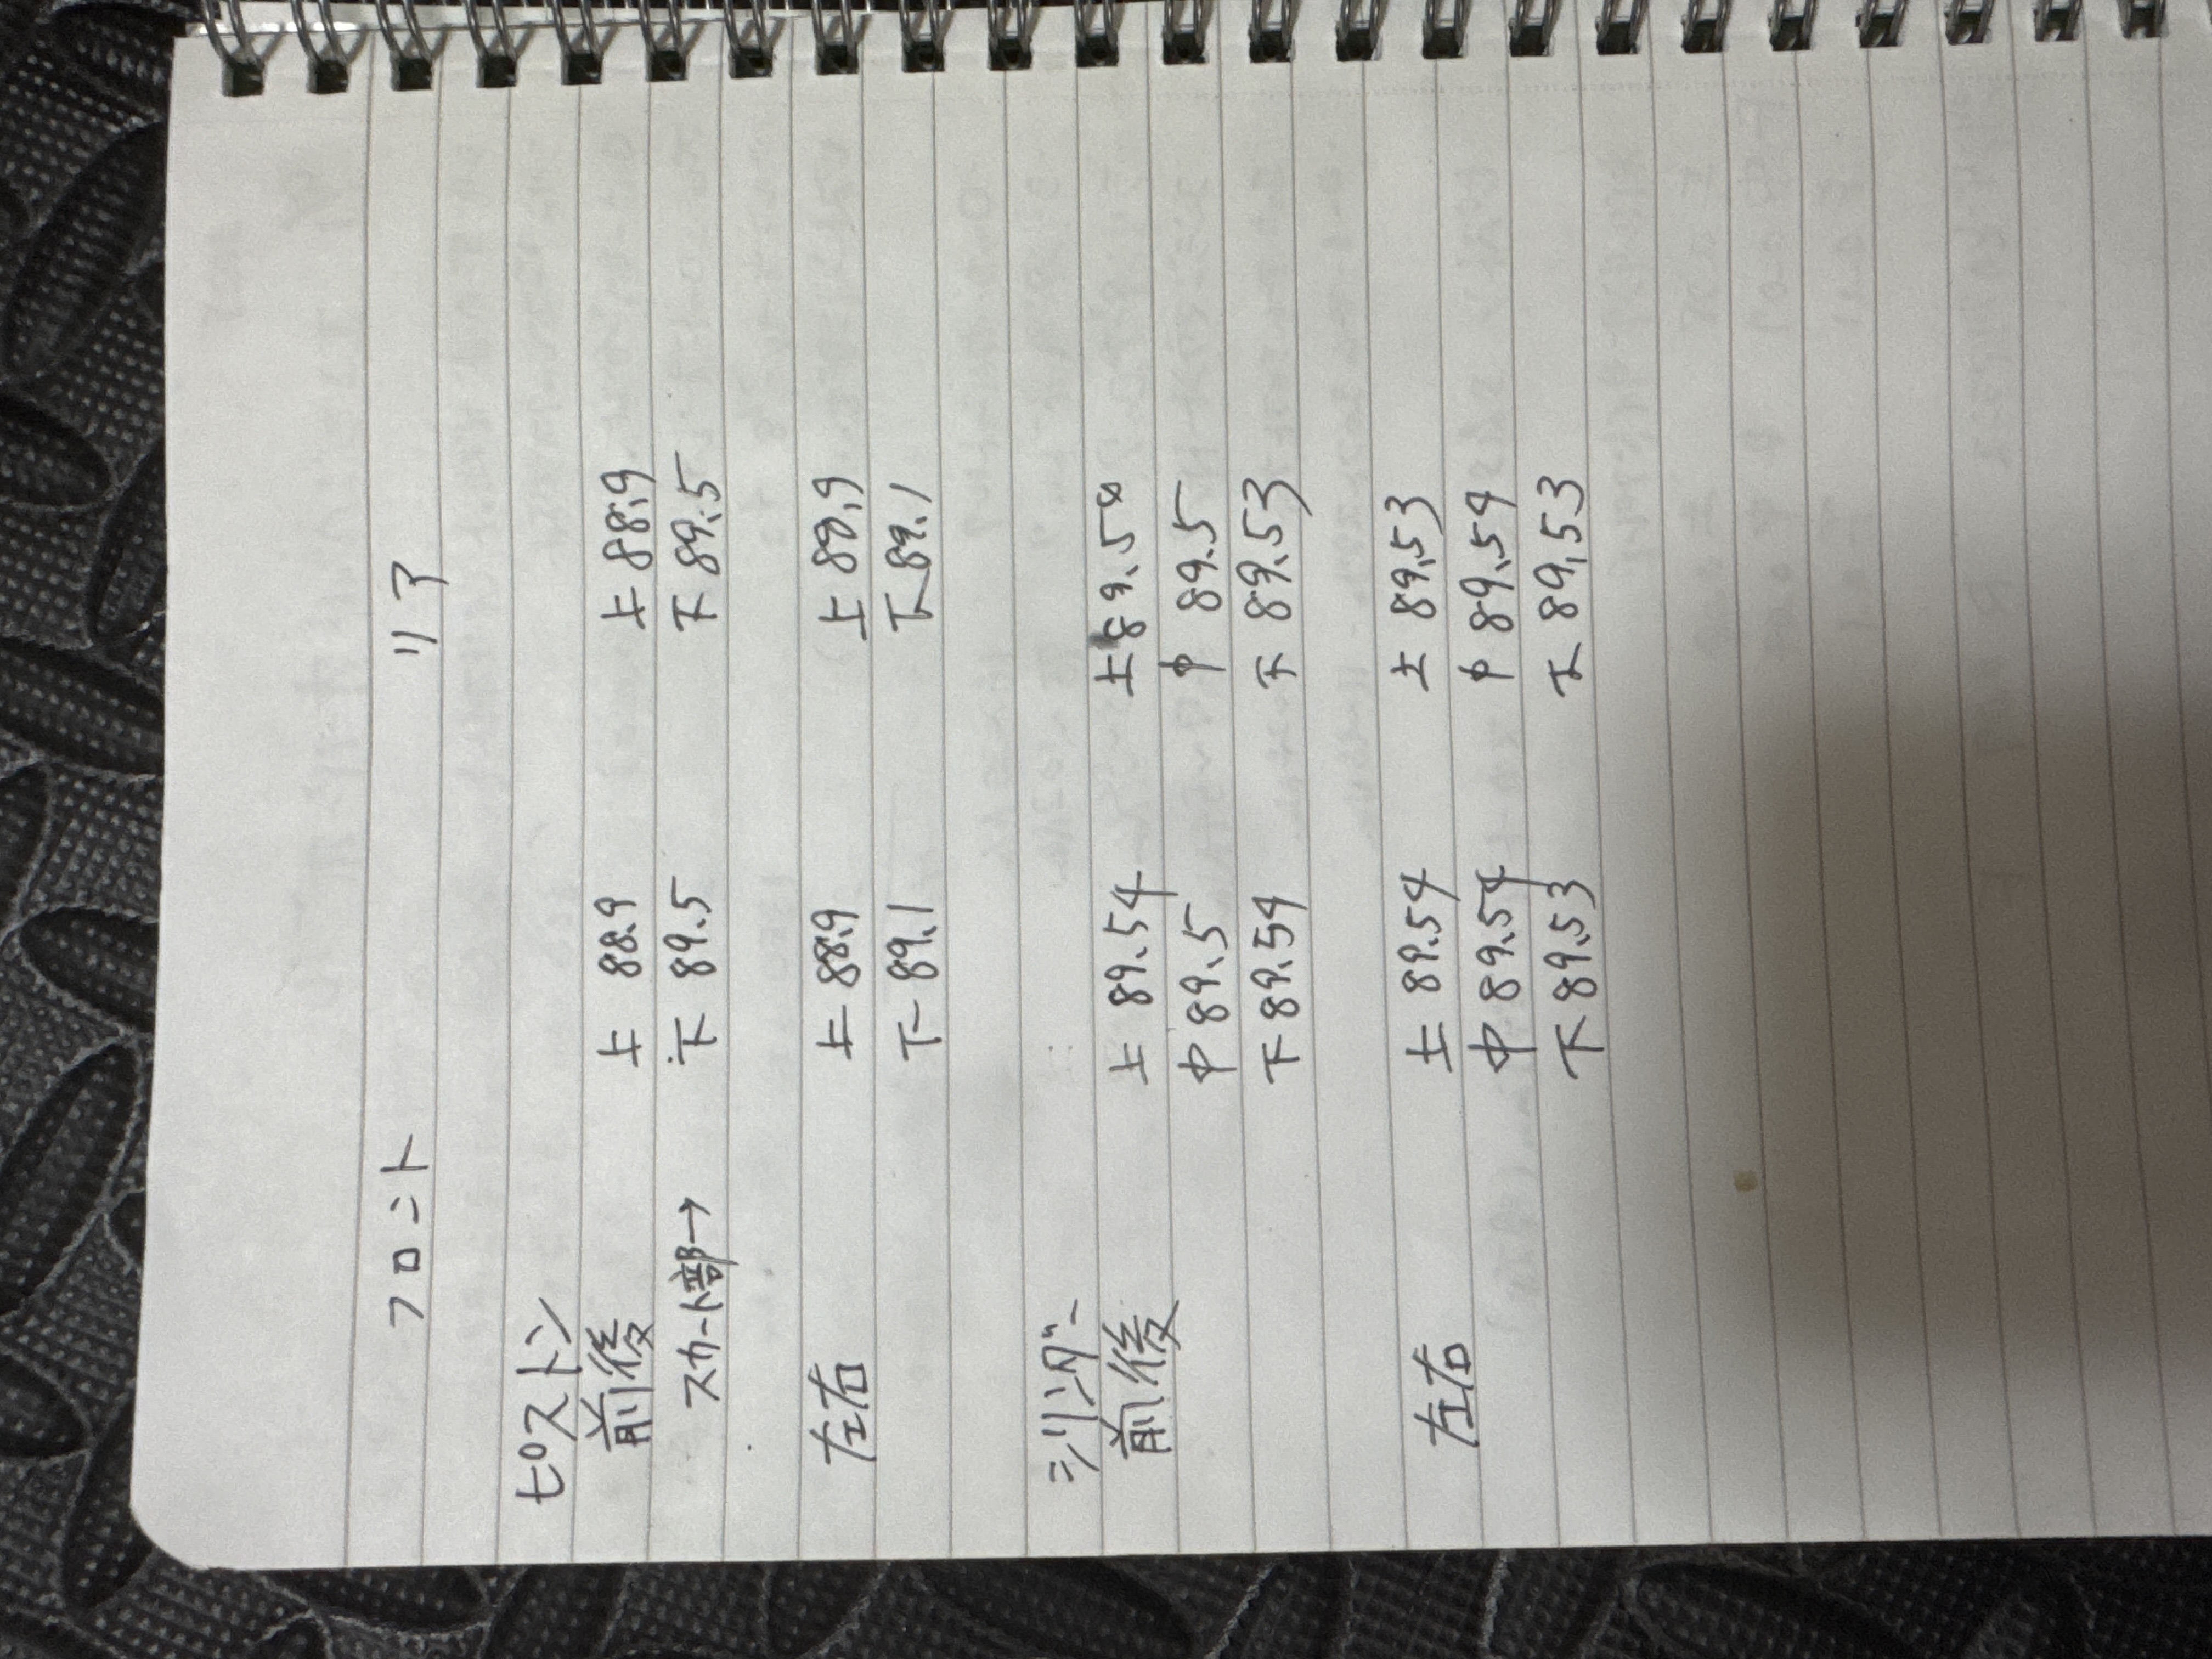 フロント リア
ピストン
前後 上 88.9 上 88.9
スカート部→ 下 89.5 下 89.5
左右 上 88.9 上 88.9
下 89.1 下 89.1
シリンダー
前後 上 89.54 上 89.54
中 89.5 中 89.5
下 89.54 下 89.53
左右 上 89.54 上 89.53
中 89.54 中 89.54
下 89.53 下 89.53